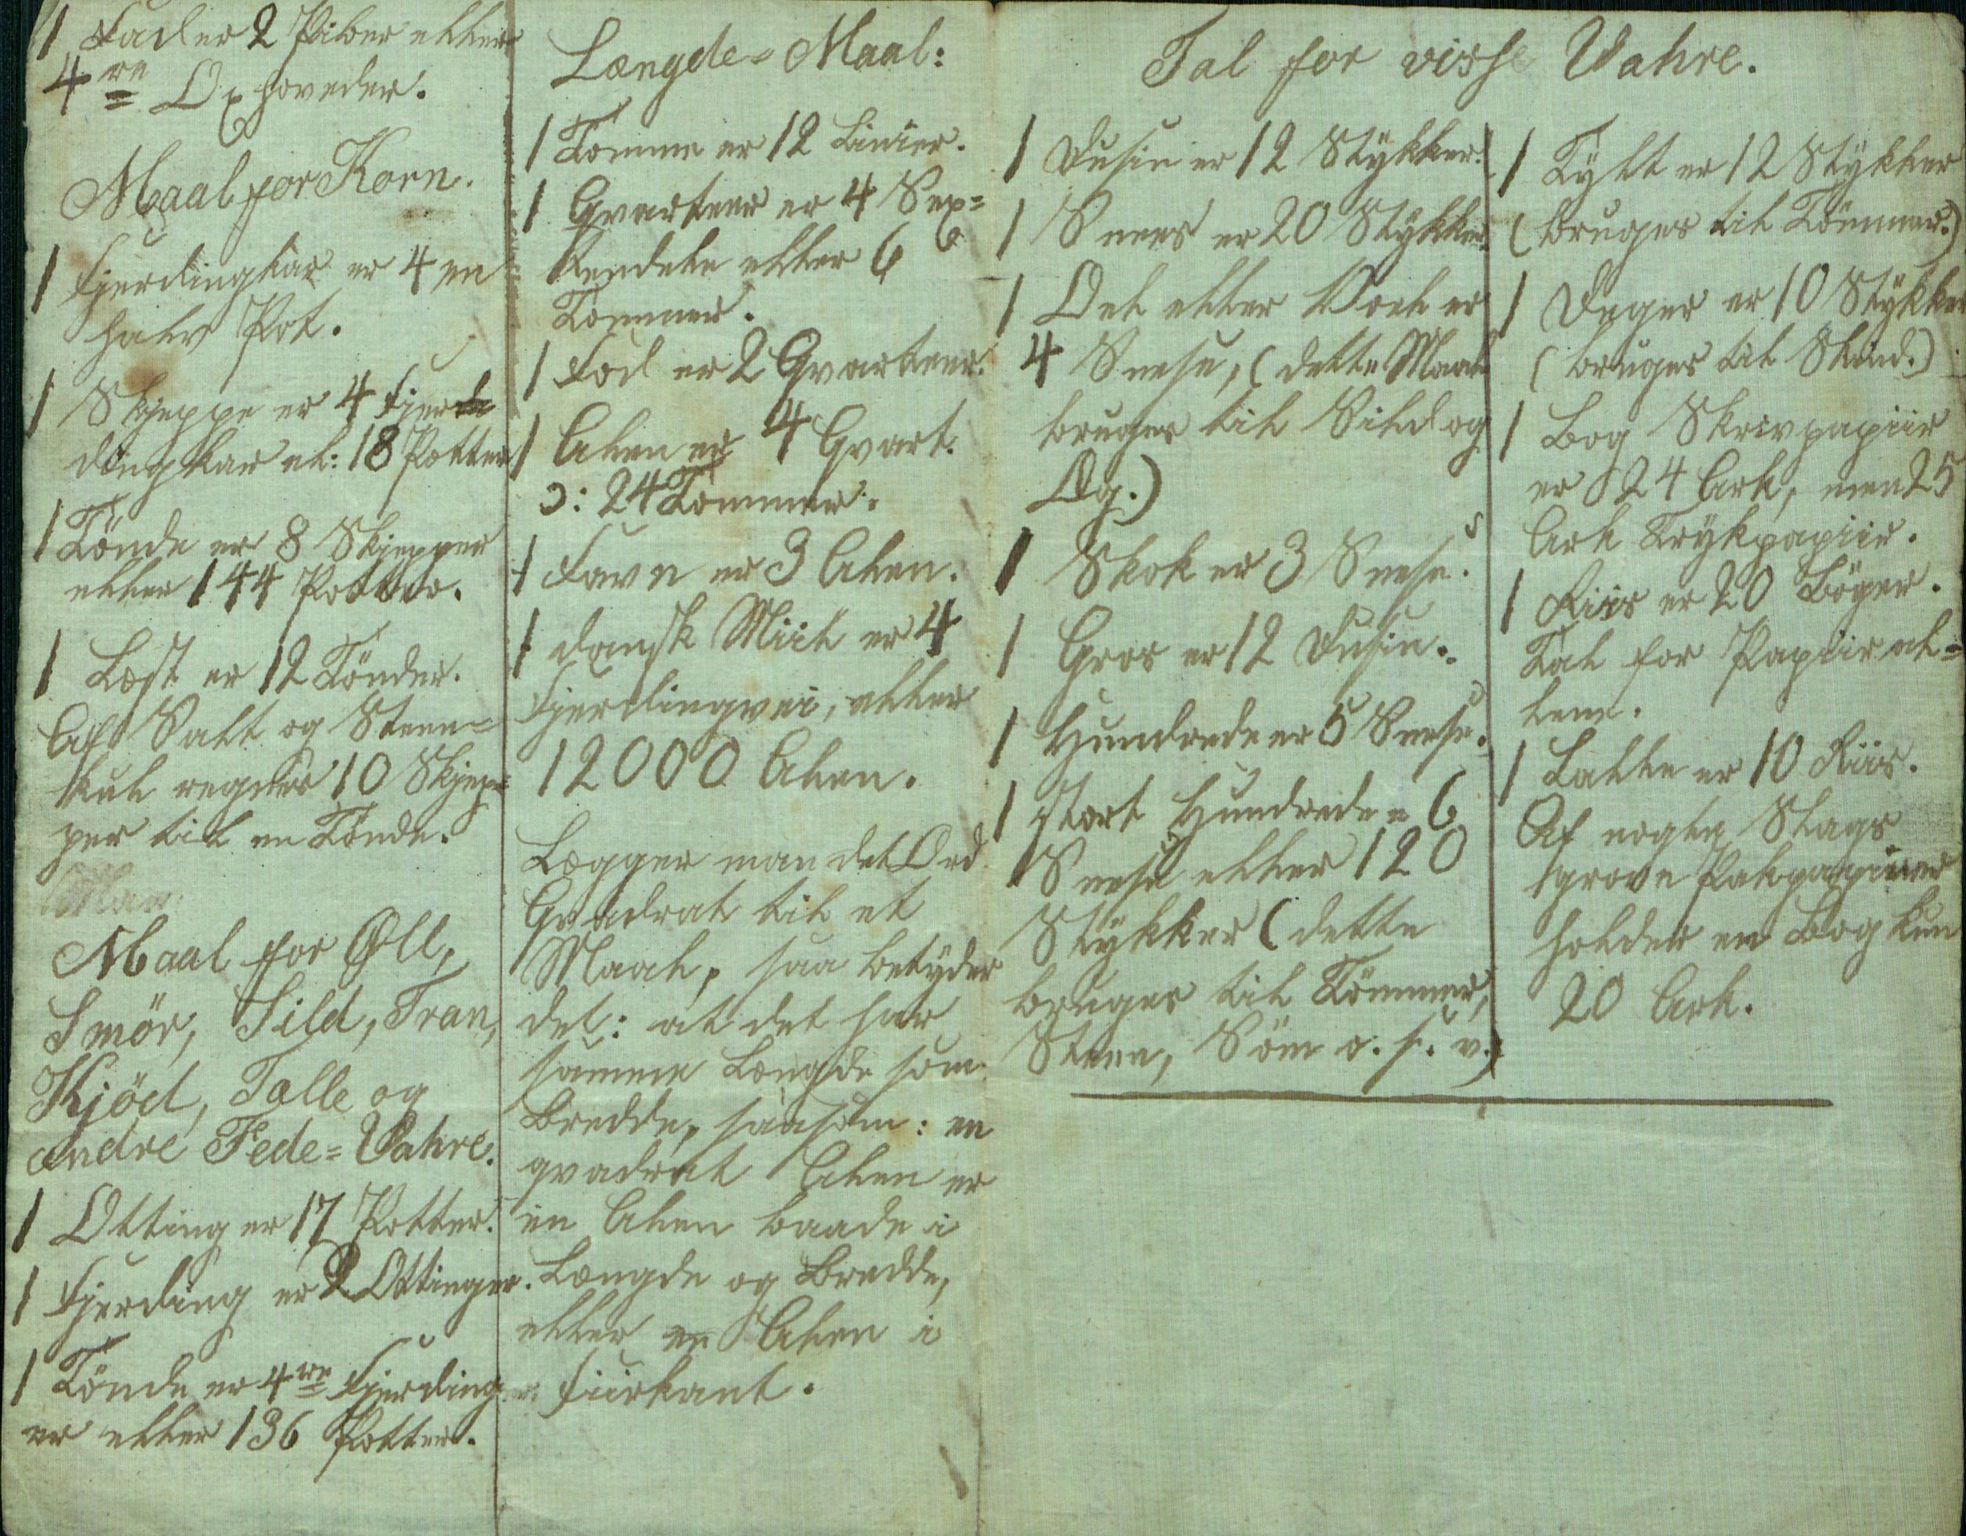 1 Fad er 2 Piber eller
4re Oxhoveder.
Maal for Korn.
1 Fjerdingkar er 4 en
halv Pot.
1 Skjeppe er 4 Fjer
dingkar el: 18 Potter
1 Tönde er 8 Skjepper
eller 144 Potter.
1 Læst er 12 Tönder.
Af Salt og Steen=
kul regnes 10 Skjep=
per til en Tönde.
Maal for Øll,
Smör, Sild, Tran,
Kjöd, Talle og
andre Fede=Vahre.
1 Otting er 17 Potter.
1 Fjerding er 2 Ottinger.
1 Tönde er 4re Fjerding
er eller 136 Potter.
Længde=Maal:
1 Tomme er 12 Linier.
1 Qvarteer er 4 Sex=
tendele eller 6
Tommer.
1 Fod er 2 Qvarteer.
1 Alen er 4 Qvart.
ɔ: 24 Tommer.
1 Favn er 3 Alen.
1 dansk Miil er 4
Fjerdingvei, eller
12000 Alen.
Lægger man det Ord
Qvadrat til et
Maal, saa betyder
det: at det har
samme Længde som
Bredde, saasom: en
qvadrat Alen er
en Alen baade i
Længde og Bredde,
eller en Alen i
Fiirkant.
Tal for visse Vahre.
1 Dusin er 12 Stykker.
1 Snees er 20 Stykker.
1 Oel eller Voel er
4 Snese, (dette Maal
bruges til Sild og
Æg.)
1 Skok er 3 Snese.
1 Gros er 12 Dusin.
1 Hundrede er 5 Snese.
1 stort Hundrede = 6
Snese eller 120
Stykker (dette
bruges til Tömmer,
Steen, Söm o. s. v.)
1 Tylt er 12 Stykker
(bruges til Tömmer.)
1 Deger er 10 Stykker
(bruges til Skind.)
1 Bog Skrivpapiir
er 24 Ark, men 25
Ark Trykpapiir.
1 Riis er 20 Böger.
Tal for Papiir al=
lene.
1 Balle er 10 Riis.
Af nogle Slags
grove Pakpapirer
holder en Bog kun
20 Ark.